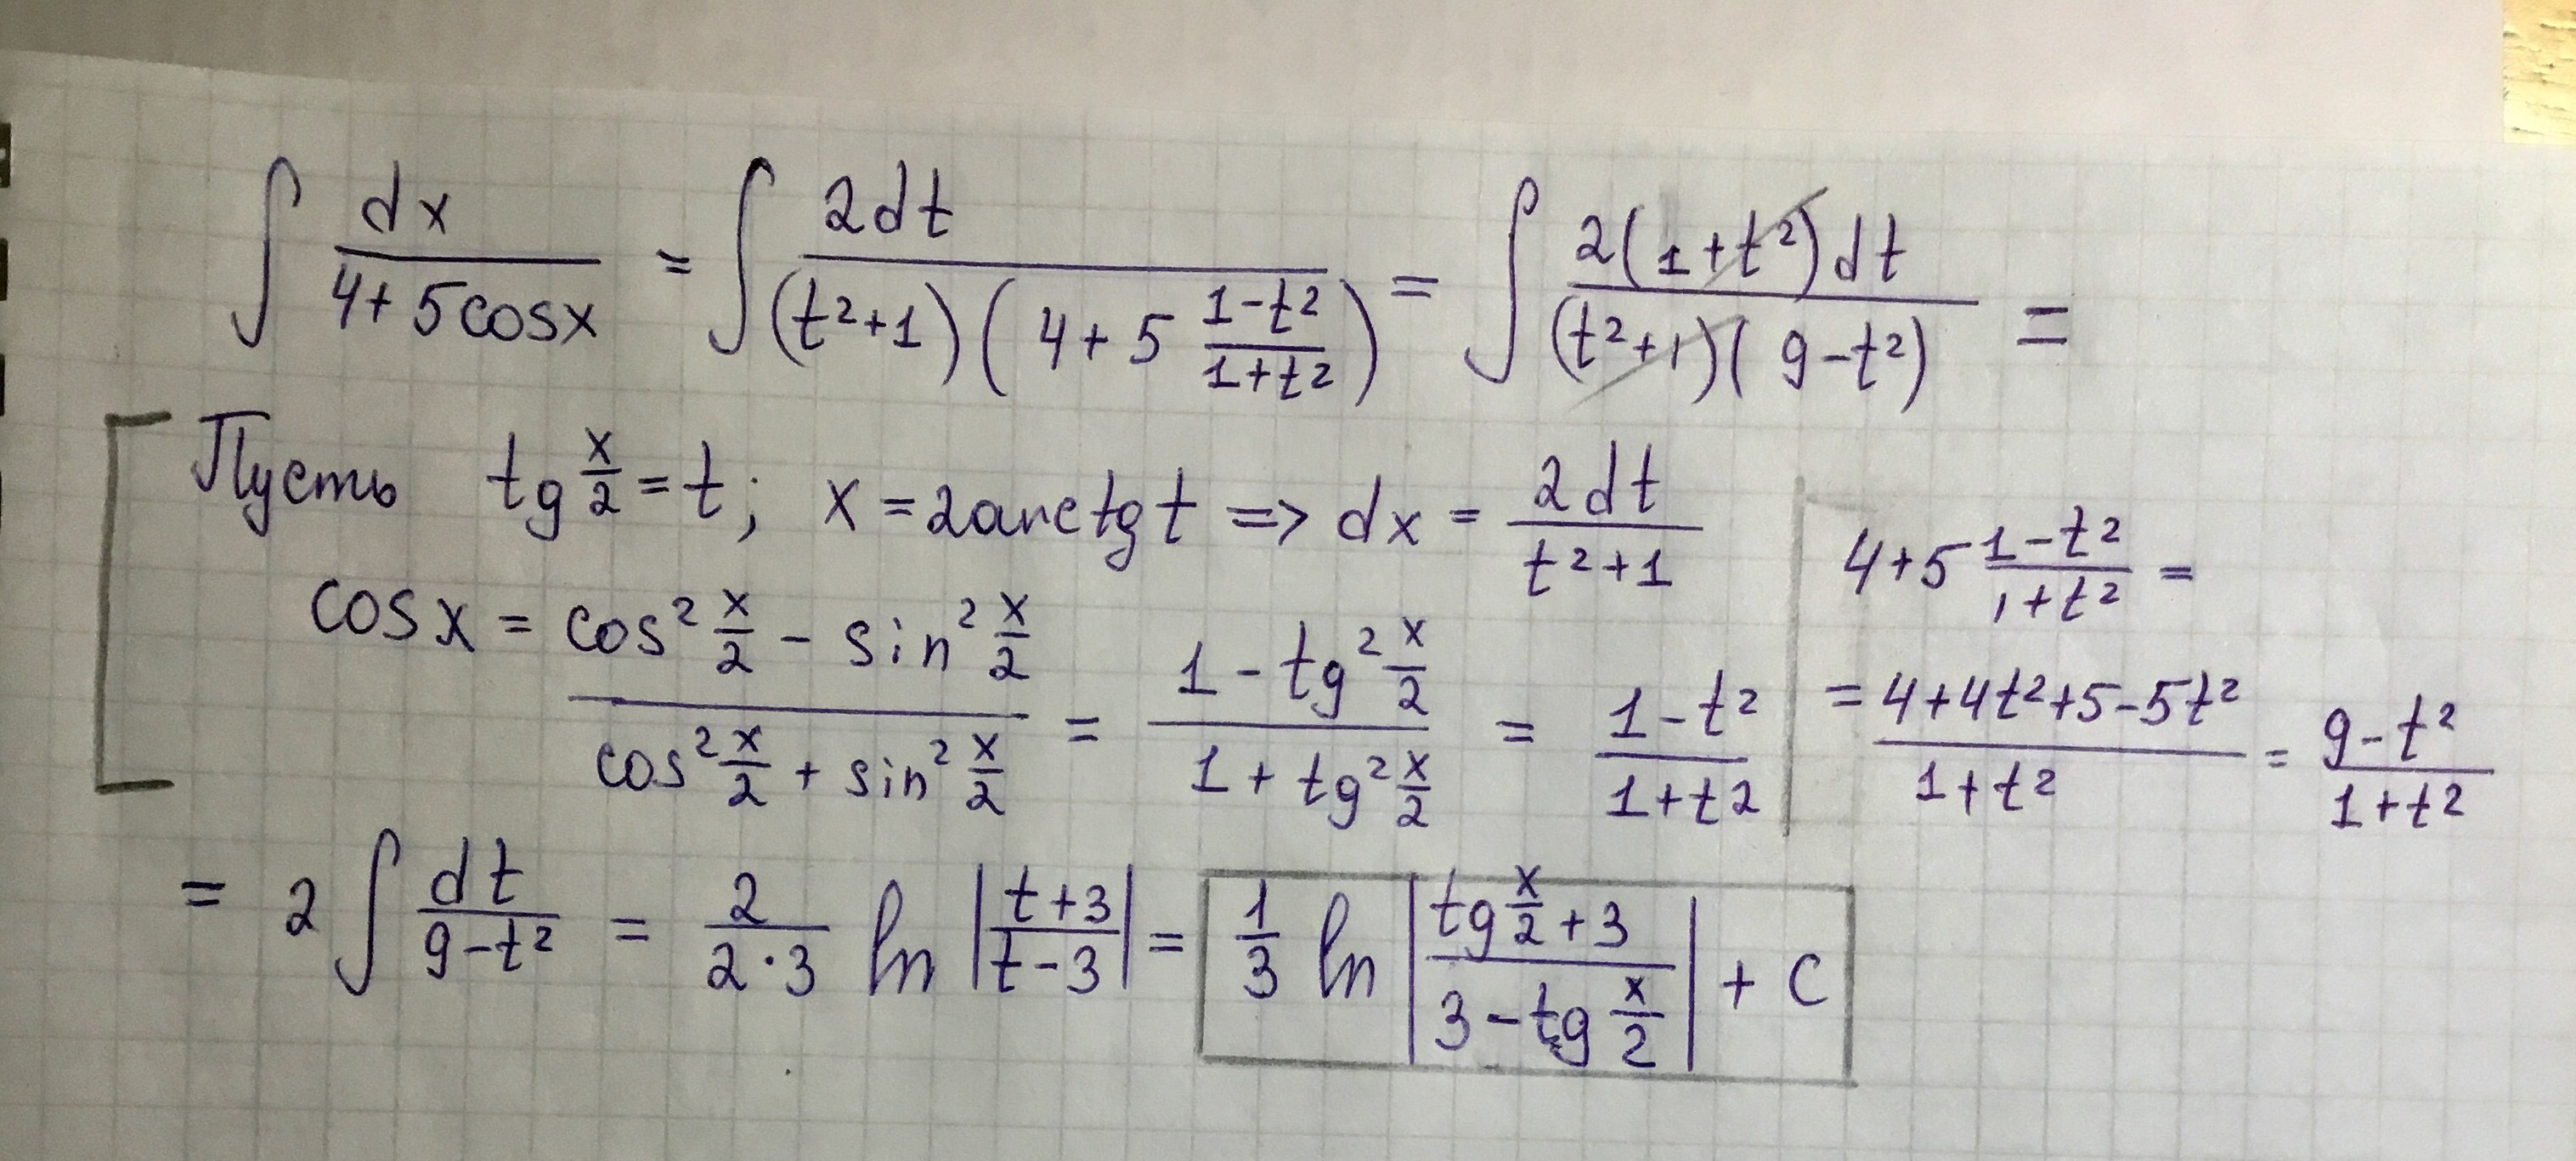 ∫ dx / (4+5cosx) = ∫ 2dt / ((t²+1)(4+5 (1-t²)/(1+t²))) = ∫ 2(1+t²)dt / ((t²+1)(9-t²)) =
Пусть tg x/2 = t; x = 2arctg t => dx = 2dt / (t²+1)
cos x = (cos² x/2 - sin² x/2) / (cos² x/2 + sin² x/2) = (1 - tg² x/2) / (1 + tg² x/2) = (1-t²) / (1+t²)
4+5 (1-t²)/(1+t²) =
= (4+4t²+5-5t²) / (1+t²) = (9-t²) / (1+t²)
= 2 ∫ dt / (9-t²) = 2 / (2·3) ln |(t+3) / (t-3)| = 1/3 ln |(tg x/2 + 3) / (3 - tg x/2)| + C